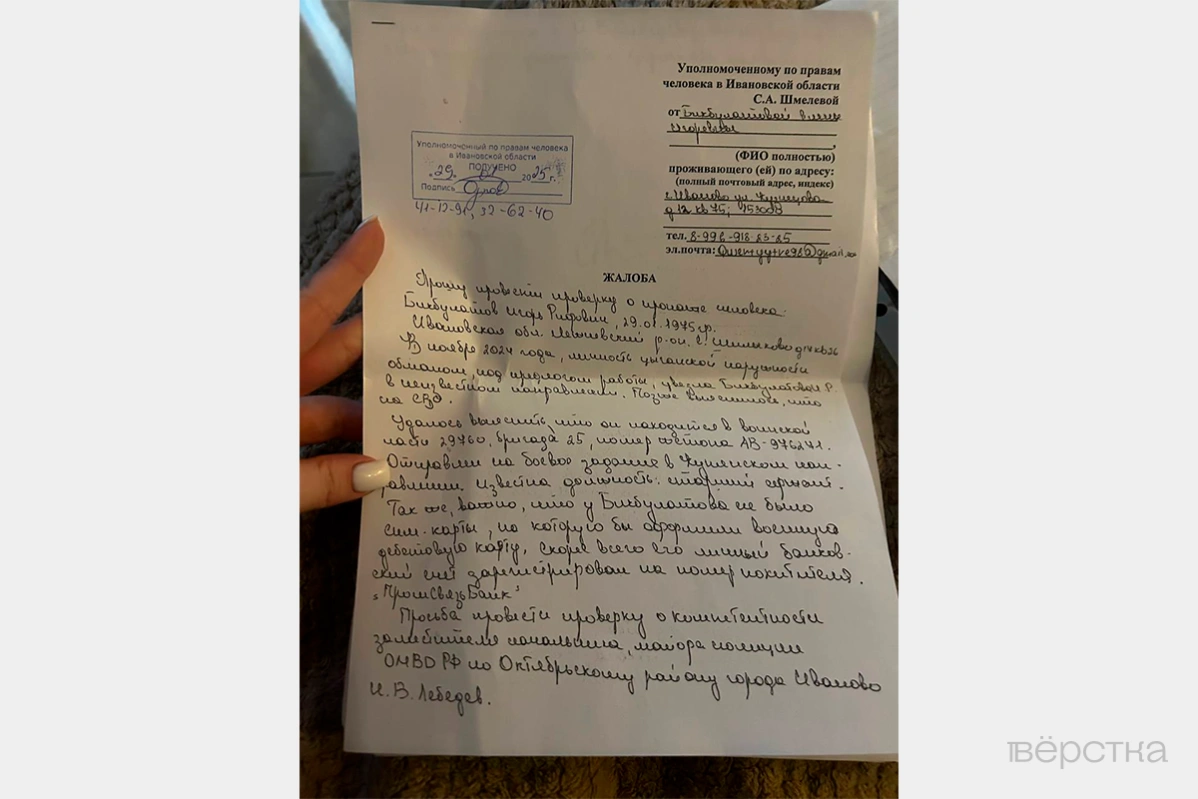 Уполномоченному по правам
человека в Ивановской области
С.А. Шмелевой
от Бикбулатовой
Игоревны
(ФИО полностью)
проживающего (ей) по адресу:
(полный почтовый адрес, индекс)
г. Иваново ул. Кузнецова
д 12 кв 75; 153003
тел. 8-996-918-23-85
эл.почта:
Уполномоченный по правам человека
в Ивановской области
ПОЛУЧЕНО
"29" 01 2025 г.
Подпись
41-12-91, 32-62-40
ЖАЛОБА
Прошу провести проверку о пропаже человека:
Бикбулатов Игорь Рифович, 29.01.1975 г.р.
Ивановская обл. Лежневский р-он. с. Шилыково д14 кв26
В ноябре 2024 года, личность цыганской наружности
обманом, под предлогом работы, увезла Бикбулатова И Р.
в неизвестном направлении. Позже выяснилось, что
на СВО.
Удалось выяснить, что он находится в воинской
части 29760, бригада 25, номер жетона АВ-976271.
Отправлен на боевое задание в Купянском нап-
равлении. Известна должность: старший сержант.
Так же, важно, что у Бикбулатова не было
сим-карты, на которую бы оформили военную
дебетовую карту, скорее всего его личный банков-
ский счёт зарегистрирован на номер похитителя.
"ПромСвязьБанк"
Просьба провести проверку о компетентности
заместителя начальника, майора полиции
ОМВД РФ по Октябрьскому району города Иваново
И.В. Лебедев.
вёрстка